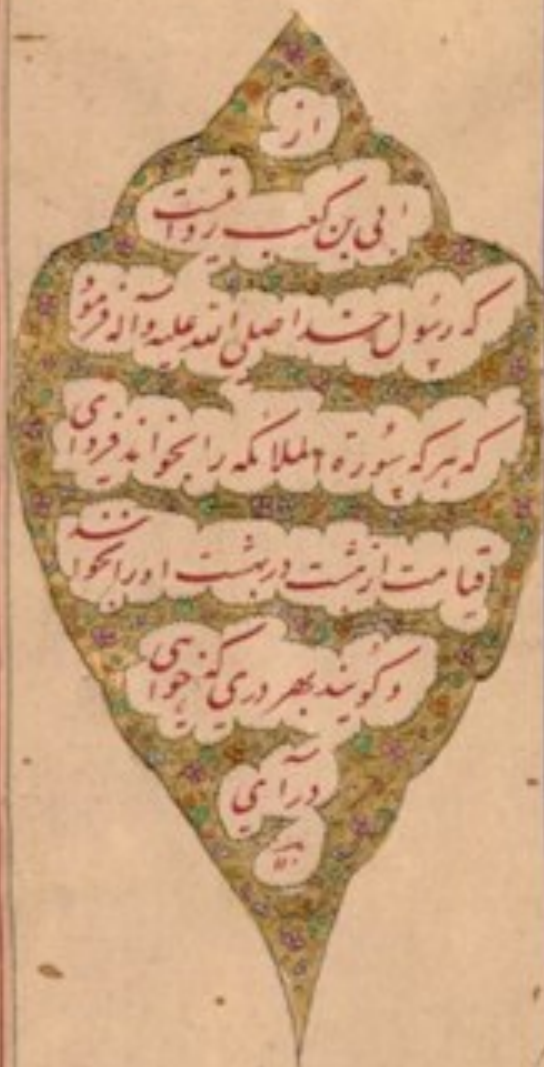 از
ابی بن کعب روایتست
که رسول خدا صلی الله علیه وآله فرمود
که هر که سورة الملائکه را بخواند فردای
قیامت از هشت در بهشت او را بخوانند
و گویند بهر دری که خواهی
درآیی